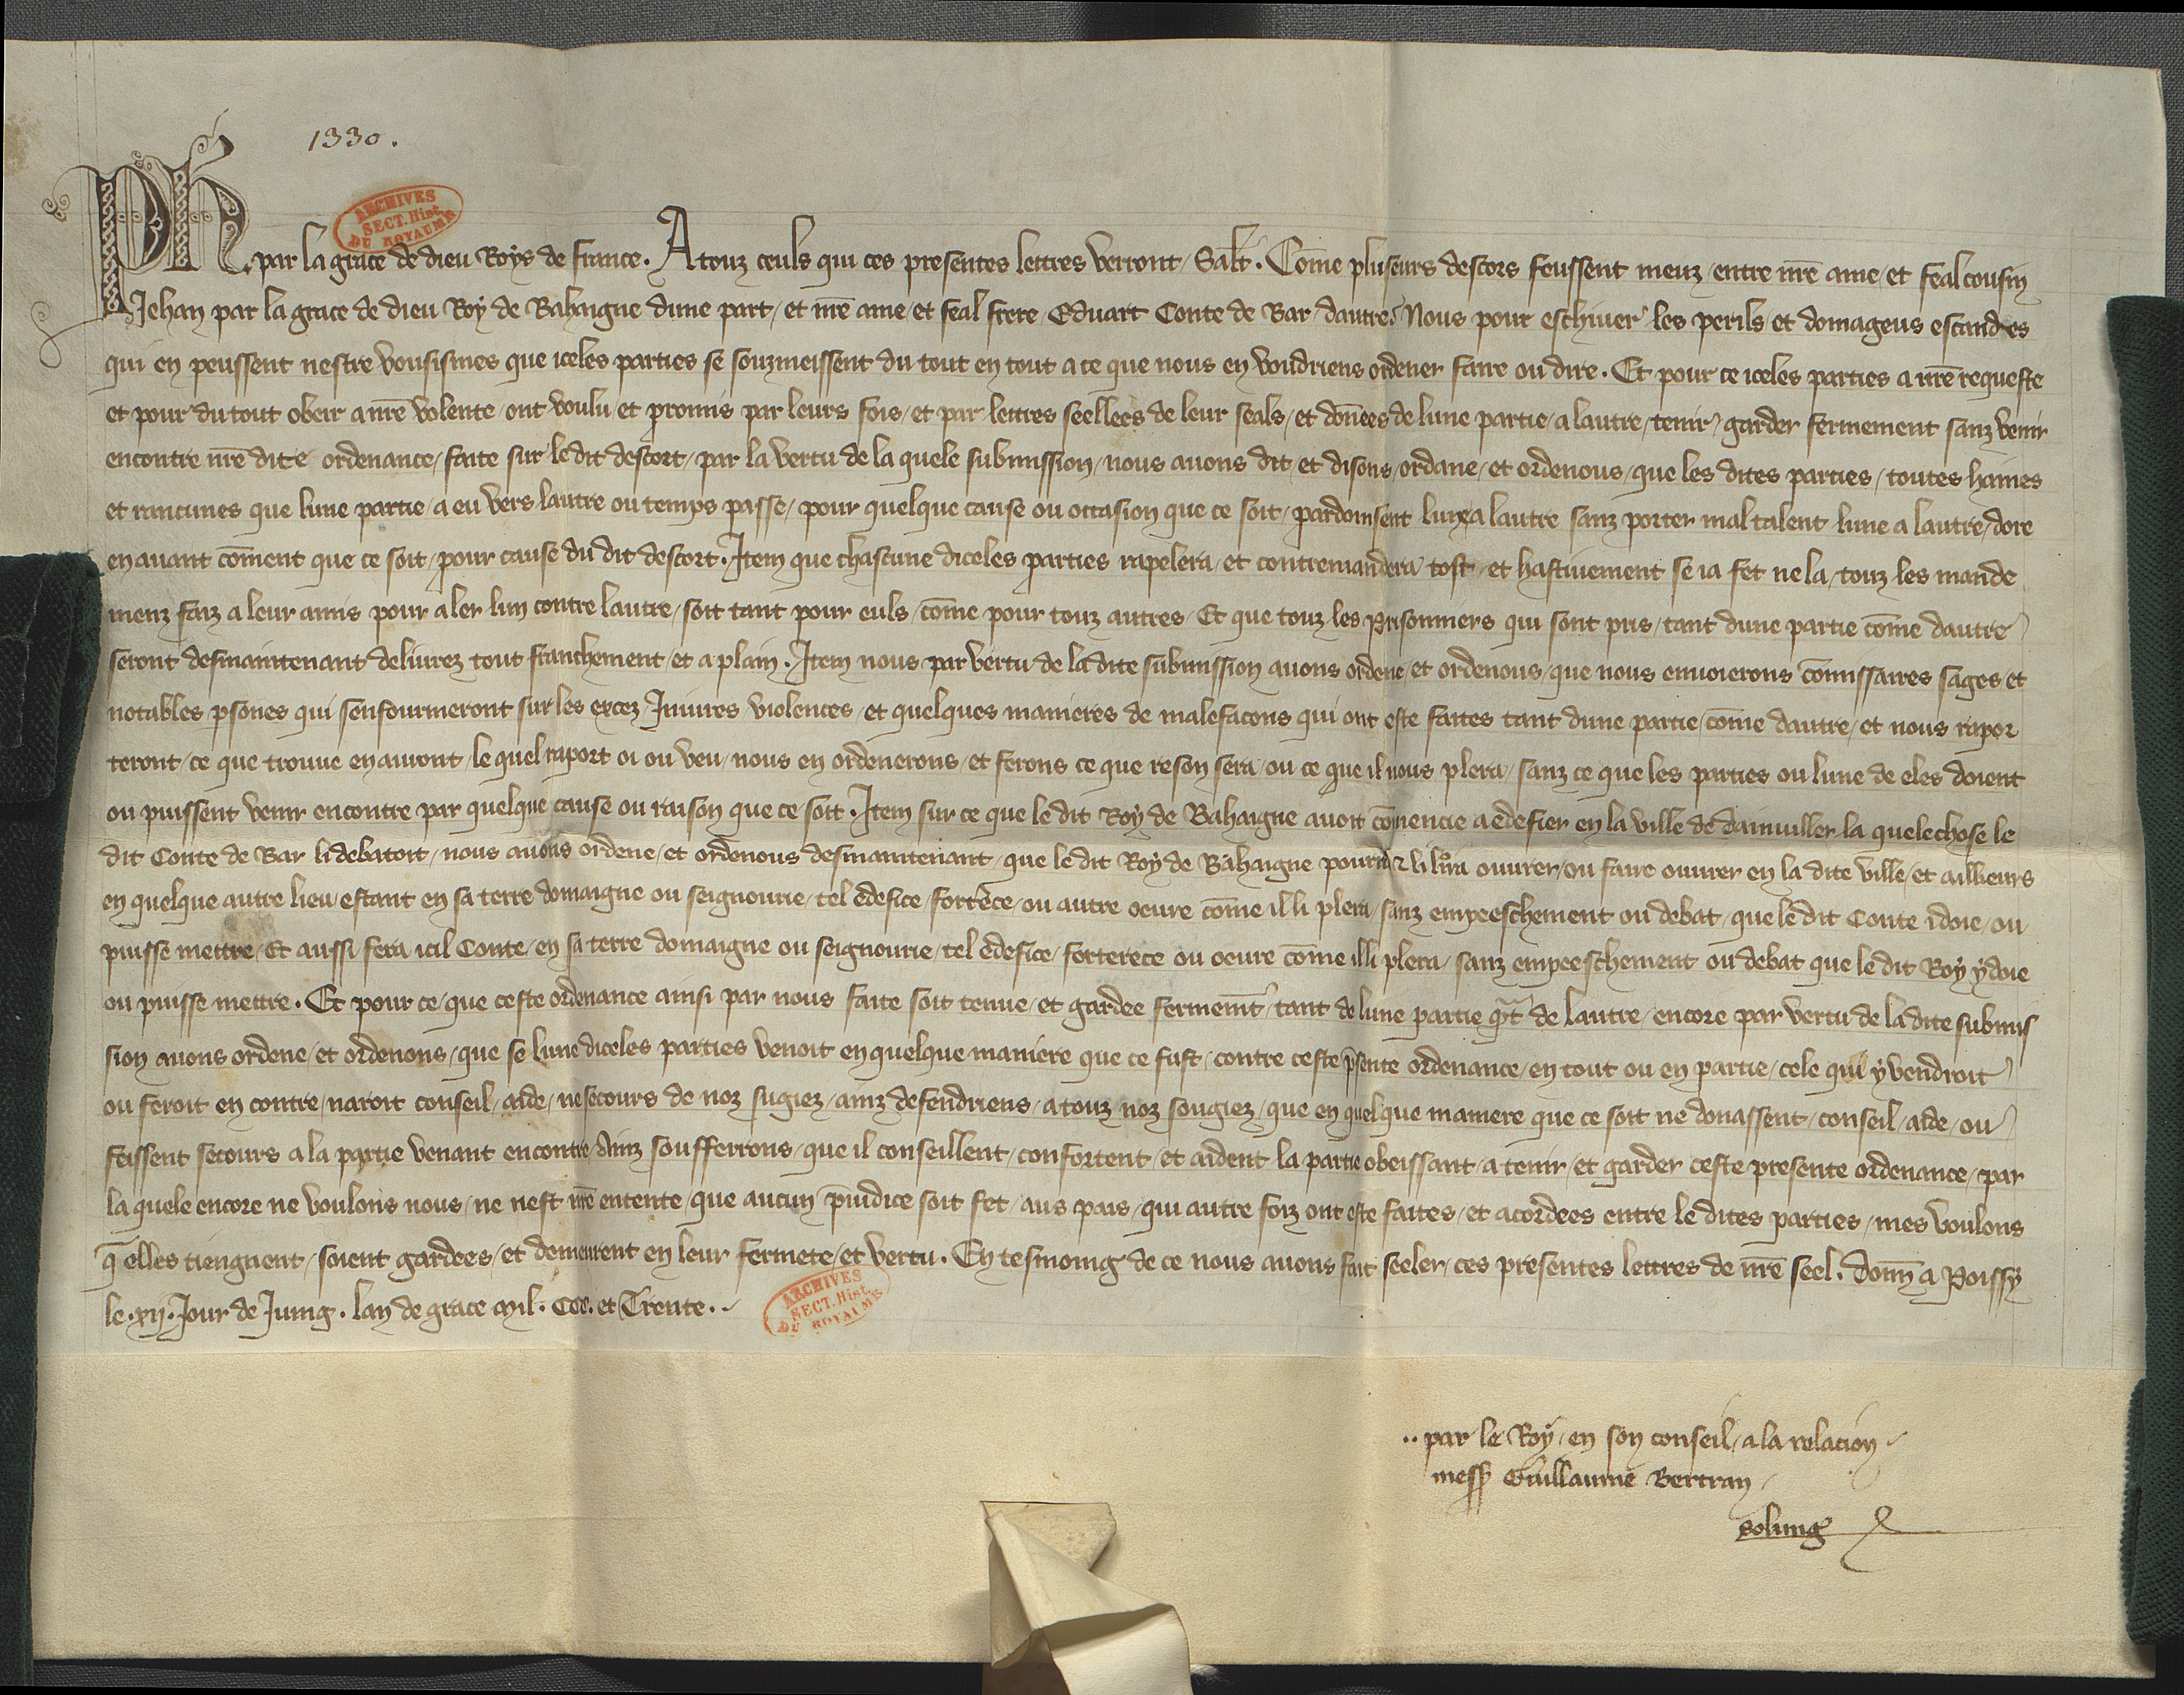 1330.
ARCHIVES
SECT. Hist.
DU ROYAUME
Ph. par la grace de dieu Roys de france. A touz ceuls qui ces presentes lettres verront, Salt. Cōme pluseurs descors feussent meuz, entre nrē ame, et feal cousin
Jehan par la grace de dieu Roy de Bahaigne dune part, et nrē ame, et feal frere Eduart Conte de Bar dautre, Nous pour eschiuer les perils, et domageus escandres
qui en peussent nestre vousismes que iceles parties se souzmeissent du tout en tout a ce que nous en voudriens ordener faire ou dire. Et pour ce iceles parties a nrē requeste
et pour du tout obeir a nrē volente, ont voulu, et promis par leurs fois, et par lettres seellees de leur seals, et dōnees de lune partie, a lautre, tenir, garder fermement sanz venir
encontre nrē dite ordenance, faite sur le dit descort, par la vertu de la quele submission, nous auons dit, et disons, ordane, et ordenous, que les dites parties, toutes haines
et rancunes que lune partie, a eu vers lautre ou temps passe, pour quelque cause ou occasion que ce soit, pardoinsent lune a lautre sanz porter mal talent lune a lautre, dore
en auant cōment que ce soit, pour cause du dit descort. Item que chascune diceles parties rapelera, et contremandera tost, et hastiuement se ia fet ne la, touz les mande
menz faiz a leur amis pour aler lun contre lautre, soit tant pour euls, cōme pour touz autres, Et que touz les prisonniers qui sont pris, tant dune partie cōme dautre
seront desmaintenant deliurez tout franchement, et a plain. Item nous par vertu de la dite submission auons ordene, et ordenous, que nous enuoierons cōmissaires sages et
notables psones qui senfourmeront sur les excez Iniures violences, et quelques manieres de malefacons qui ont este faites tant dune partie, cōme dautre, et nous rapor
teront, ce que trouue en auront, le quel raport oi ou veu, nous en ordenerons, et ferons ce que reson sera, ou ce que il nous plera, sanz ce que les parties ou lune de eles doient
ou puissent venir encontre par quelque cause ou raison que ce soit. Item sur ce que le dit Roy de Bahaigne auoit cōmencie a edefier en la ville de Damuiller la quele chose le
dit Conte de Bar li debatoit, nous auons ordene, et ordenous desmaintenant, que le dit Roy de Bahaigne pourra & li lra ouurer, ou faire ouurer en la dite ville, et ailleurs
en quelque autre lieu, estant en sa terre domaigne ou seignourie, tel edefice, fortece, ou autre oeure cōme il li plera, sanz empeeschement ou debat, que le dit Conte i doie, ou
puisse mettre, Et aussi fera icil Conte, en sa terre domaigne ou seignourie, tel edefice, forterece ou oeure cōme il li plera, sanz empeeschement ou debat que le dit Roy y doie
ou puisse mettre. Et pour ce, que ceste ordenance ainsi par nous faite soit tenue, et gardee fermemt, tant de lune partie qt de lautre, encore par vertu de la dite submis
sion auons ordene, et ordenons, que se lune diceles parties venoit en quelque maniere que ce fust, contre ceste psente ordenance, en tout ou en partie, cele qui y vendroit
ou feroit en contre, naroit conseil, aide, ne secours de noz sugiez, ainz defendriens, a touz noz sougiez, que en quelque maniere que ce soit ne donassent, conseil, aide, ou
feissent secours a la partie venant encontre, Ainz soufferrons, que il conseillent, confortent, et aident la partie obeissant, a tenir, et garder ceste presente ordenance, par
la quele encore ne voulons nous, ne nest nrē entente, que aucun piudice soit fet, aus pais, qui autre foiz ont este faites, et acordees entre le dites parties, mes voulons
q̄ elles tiengnent, soient gardees, et demeurent en leur fermete, et vertu. En tesmoing de ce nous auons fait seeler, ces presentes lettres de nrē seel. Donn̄ a Poissy
le .xij. Jour de Juing. lan de grace Mil. CCC. et Trente.
ARCHIVES
SECT. Hist.
DU ROYAUME
.. par le Roy, en son conseil, a la relacion
mess Guillaume Bertran